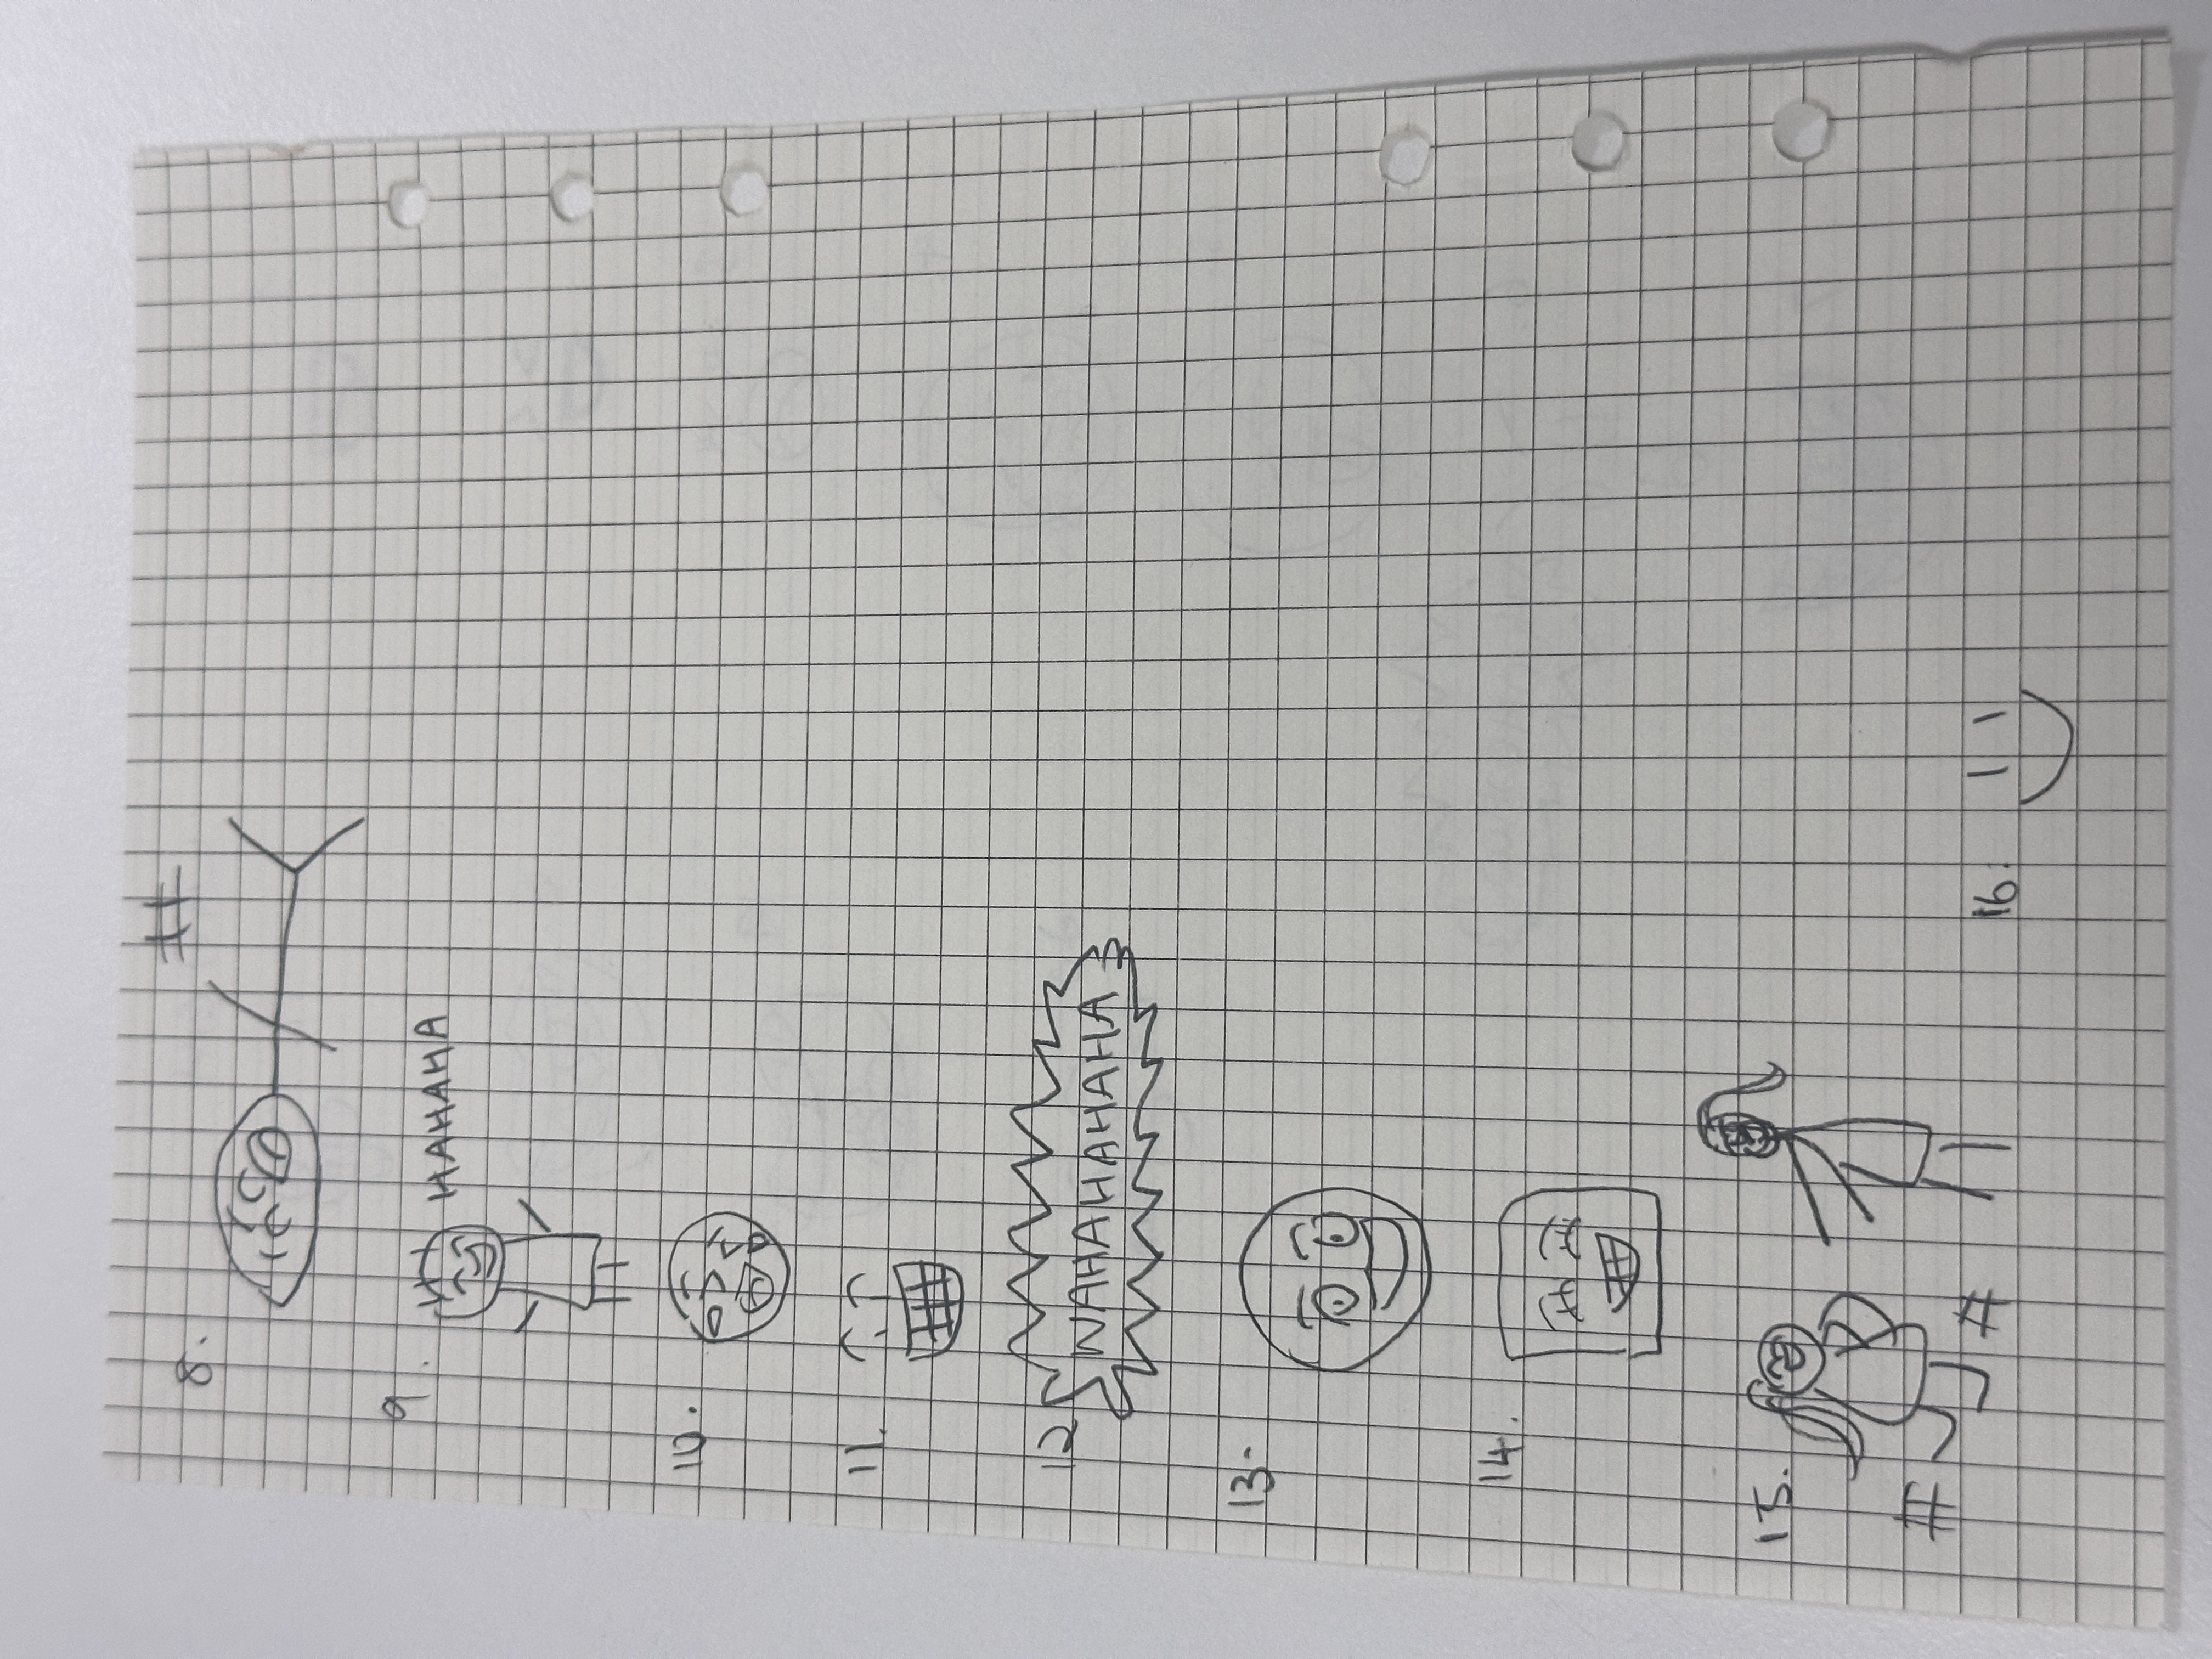 #
8.
9. HAHAHA
10.
11.
12 WAHAHAHAHA
13.
14.
15.
#
#
16.